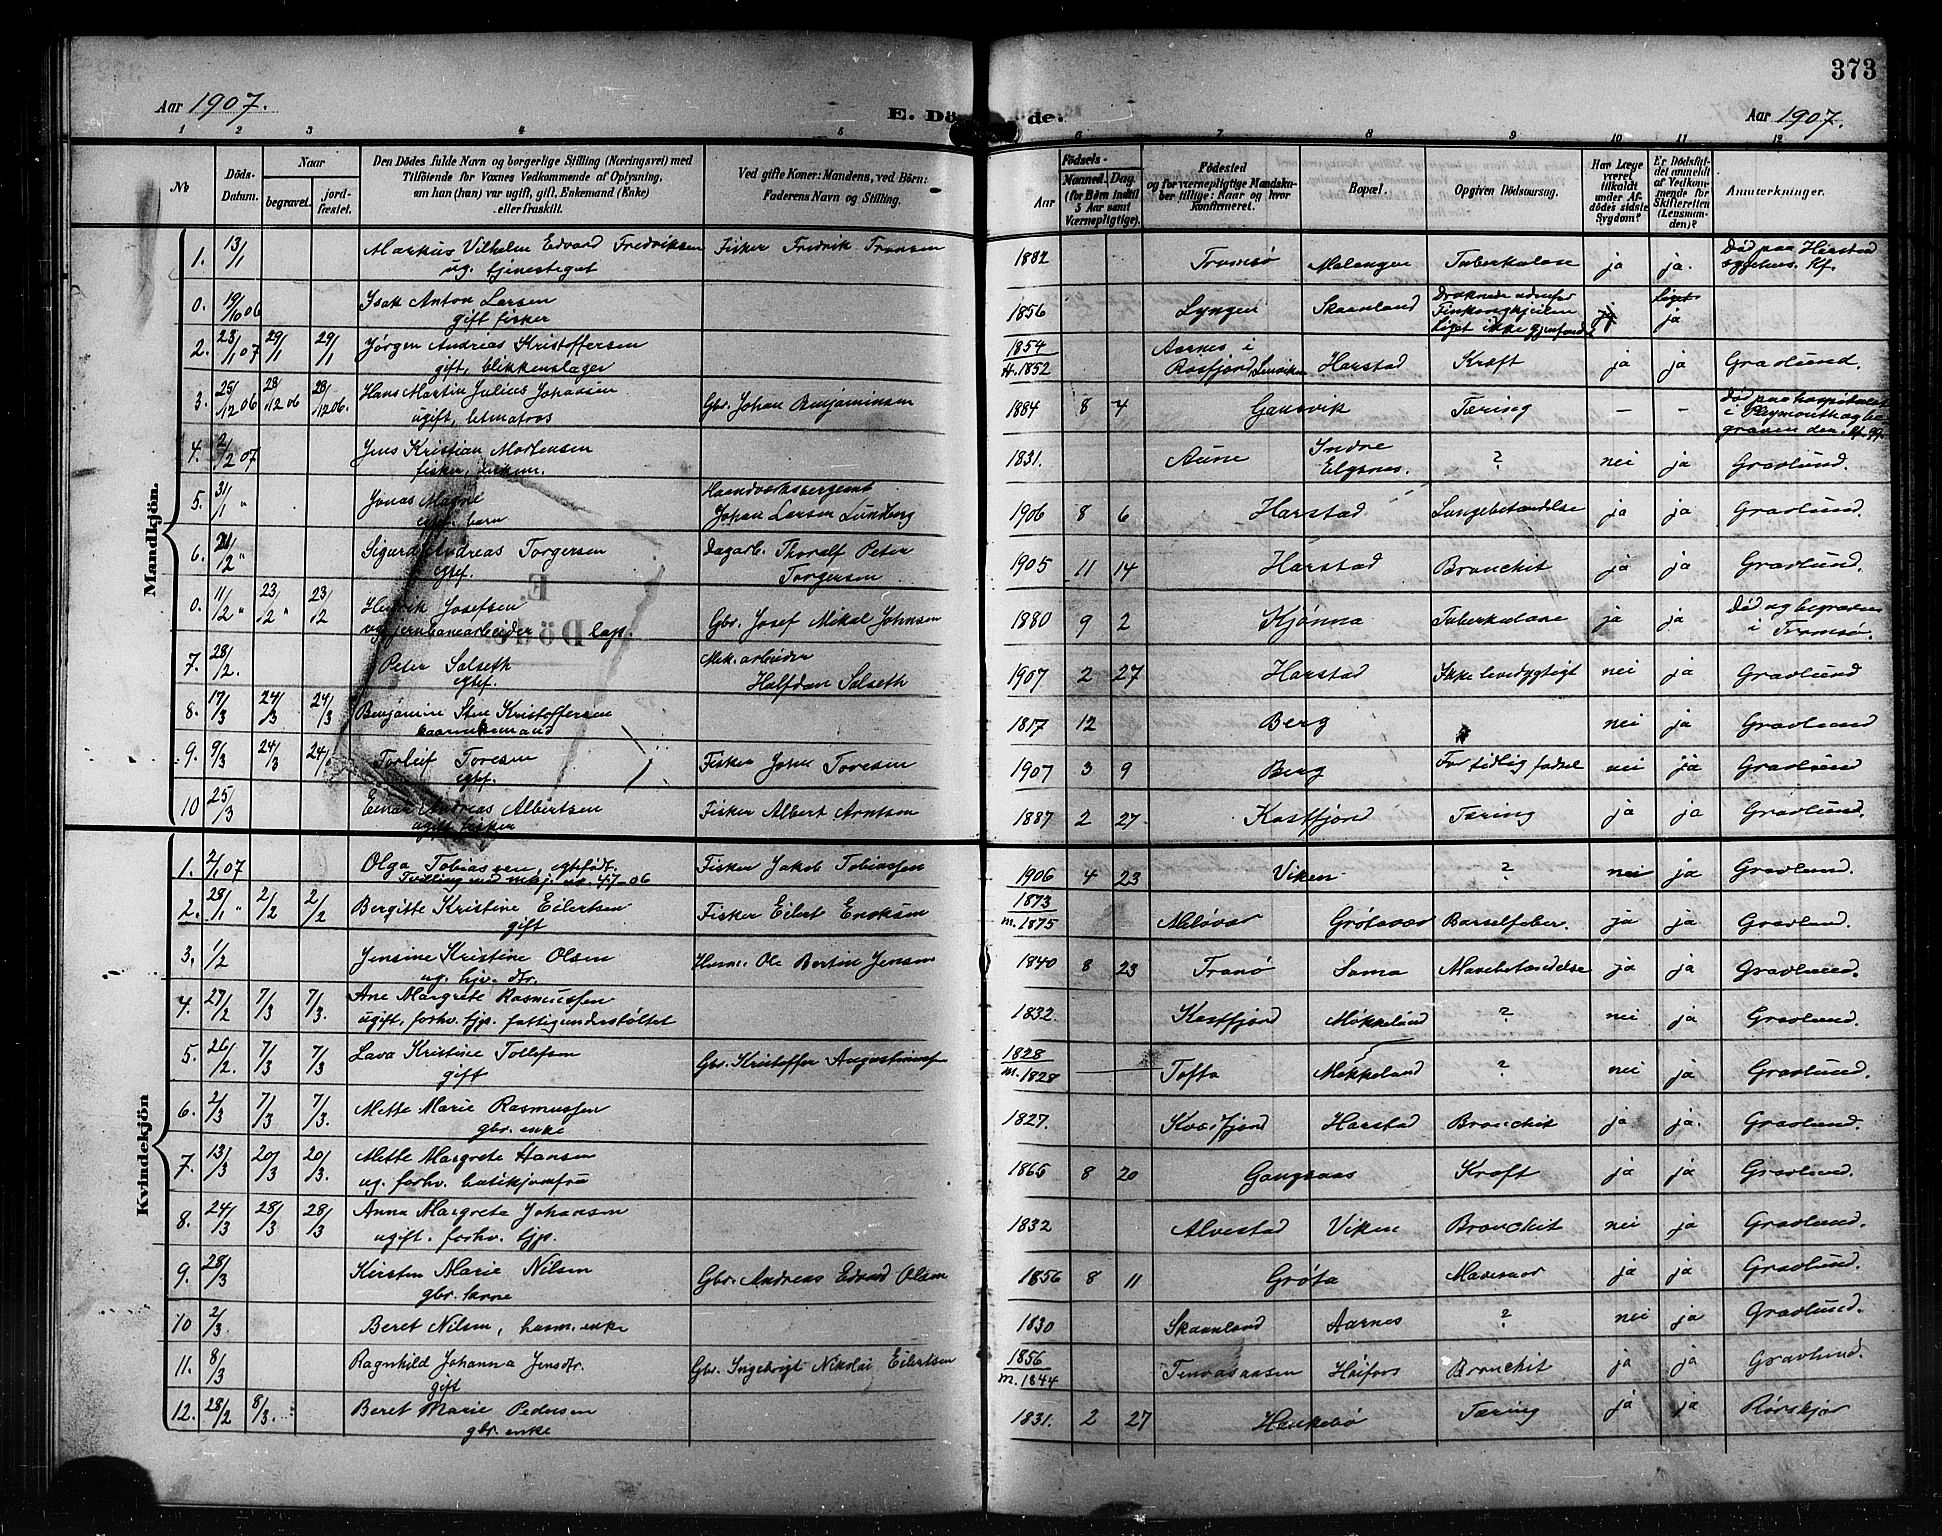 373
Aar 1907.
E. Dö de.
Aar 1907.
1 2 3 4 5 6 7 8 9 10 11 12
No
Döds-Datum.
Naar
begravet.
jord-fæstet.
Den Dödes fulde Navn og borgerlige Stilling (Næringsvei) med
Tilföiende for Voxnes Vedkommende af Oplysning,
om han (hun) var ugift, gift, Enkemand (Enke)
eller fraskilt.
Ved gifte Koner: Mandens, ved Börn:
Faderens Navn og Stilling.
Födsels-
Aar
Maaned. Dag.
(for Börn indtil
5 Aar samt
Værnepligtige).
Födested
og for værnepligtige Mandska-
ber tillige: Naar og hvor
konfirmeret.
Bopæl.
Opgiven Dödsaarsag.
Har Læge
været
tilkaldt
under Af-
dödes sidste
Sygdom?
Er Dödsfal-
det anmeldt
af Vedkom-
mende for
Skifteretten
(Lensman-
den)?
Anmerkninger.
Mandkjön.
1. 13/1 Markus Vilhelm Edvard Fredriksen Fisker Fredrik Transen 1882 Tromsø Malangen Tuberkulose ja ja. Død paa Harstad
ug. tjenestegut sygehus. Kf.
0. 19/10 06 Isak Anton Larsen 1856 Lyngen Skaanland Druknede udenfor
gift fisker Finkongkjeilen ja
Liget ikke gjenfundet
2. 23/1 07 29/1 29/1 Jørgen Andreas Kristoffersen 1854 Aarnes i
gift, blikkenslager H. 1852 Rosfjord Lenviken Harstad Kræft ja ja Gravlund.
3. 25/12 06 28/12 06 28/12 06. Hans Martin Julius Johansen Gbr. Johan Benjaminsen 1884 8 4 Gausvik Tæring – – Død paa hospitalet
ugift, letmatros i Plymouth og be-
graven der.
4. 2/2 07 Jens Kristian Mortensen 1831. Aune Indre
fisker, enkem. Elgsnes. ? nei ja Gravlund.
5. 31/1 " Jonas Magne Haandverkssergeant
egtef. barn Johan Larsen Lundberg 1906 8 6 Harstad Lungebetændelse ja ja Gravlund.
6. 21/2 " Sigurd Andreas Torgersen Dagarb. Thoralf Peter 1905 11 14 Harstad Bronchit ja ja Gravlund.
egtef. Torgersen
0. 11/2 " 23/2 " 23/2 Henrik Josefsen Gbr. Josef Mikal Johnsen 1880 9 2 Kjønna Tuberkulose ja ja Død og begraven
ug. jernbanearbeider lap. i Tromsø.
7. 28/2. Peter Salseth Mek. arbeider 1907 2 27 Harstad Ikke levedygtigt nei ja Gravlund
egtef. Halfdan Salseth
8. 17/3 24/3 24/3 Benjamin Sten Kristoffersen 1817 12 Berg nei ja Gravlund
kaarenkemand
9. 9/3 24/3 24/ Torleif Toresen Fisker John Toresen 1907 3 9 Berg For tidlig fødsel nei ja Gravlund
egtef.
10 25/3 Einar Andreas Albertsen Fisker Albert Arntsen 1887 2 27. Kastfjord Tæring ja ja Gravlund.
ugift fisker
Kvindekjön
1. 2/1 07 Olga Tobiassen, egtefødt. Fisker Jakob Tobiassen 1906 4 23 Viken ? nei ja Gravlund.
Tvilling med no. 47-06
2. 28/1 " 2/2 2/2 Bergitte Kristine Eilertsen Fisker Eilert Enoksen 1873 m. 1875 Meløvær Grøtavær Barselfeber. ja ja Gravlund.
gift
3. 1/2 Jensine Kristine Olsen Husm. Ole Bertin Jensen 1840 8 23 Tranø Sama Mavebetændelse ja ja Gravlund.
ug. hjv. dtr.
4. 27/2 7/3 7/3. Ane Margrete Rasmussen 1832. Kastfjord Møkkeland ? nei ja Gravlund.
ugift, forhv. tjp. fattigunderstøttet
5. 26/2. 7/3 7/3 Lava Kristine Tollefsen Gbr. Kristoffer Augustinussen 1828 m. 1828 Tofta Møkkeland ? nei ja Gravlund.
gift
6. 2/3 7/3 7/3. Mette Marie Rasmussen 1827. Kasfjord Harstad Bronchit ja ja. Gravlund.
gbr. enke
7. 13/3 20/3 20/3. Mette Margrete Hansen 1865 8 20 Gangsaas Kræft ja ja Gravlund.
ug. forhv. butikjomfru
8. 24/3 28/3 28/3 Anna Margrete Johansen 1832 Alvestad Viken Bronchit nei ja Gravlund.
ugift. forhv. tjp.
9. 28/3 Kirsten Marie Nilsen Gbr. Andreas Edvard Olsen 1856 8 11 Grøta Mavesaar ja ja Gravlund.
gbr. kone
10 2/3. Beret Nilsen, husm. enke 1830 Skaanland Aarnes ? nei ja Gravlund.
11. 8/3 Ragnhild Johanna Jensdtr. Gbr. Ingebrigt Nikolai Eilertsen 1856 m. 1844 Tennaasaasen Halfors Bronchit ja ja Gravlund.
gift
12. 28/2 8/3. Beret Marie Pedersen 1831. 2 27 Haukebø Tæring ja ja Rørskjær
gbr. enke